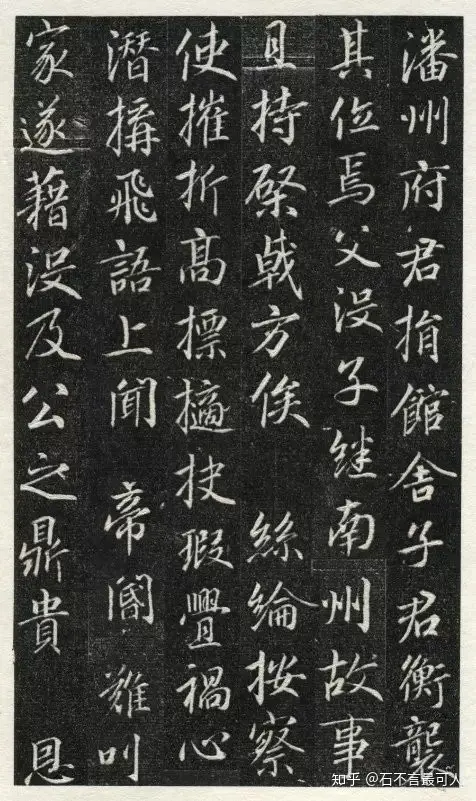 潘州府君捐館舍子君衡襲
其位焉父没子継南州故事
且持棨戟方俟 絲綸按察
使摧折高標擿抉瑕舋禍心
潜搆飛語上聞 帝閽難叫
家遂藉没及公之鼎貴 恩
知乎 @石不言最可人